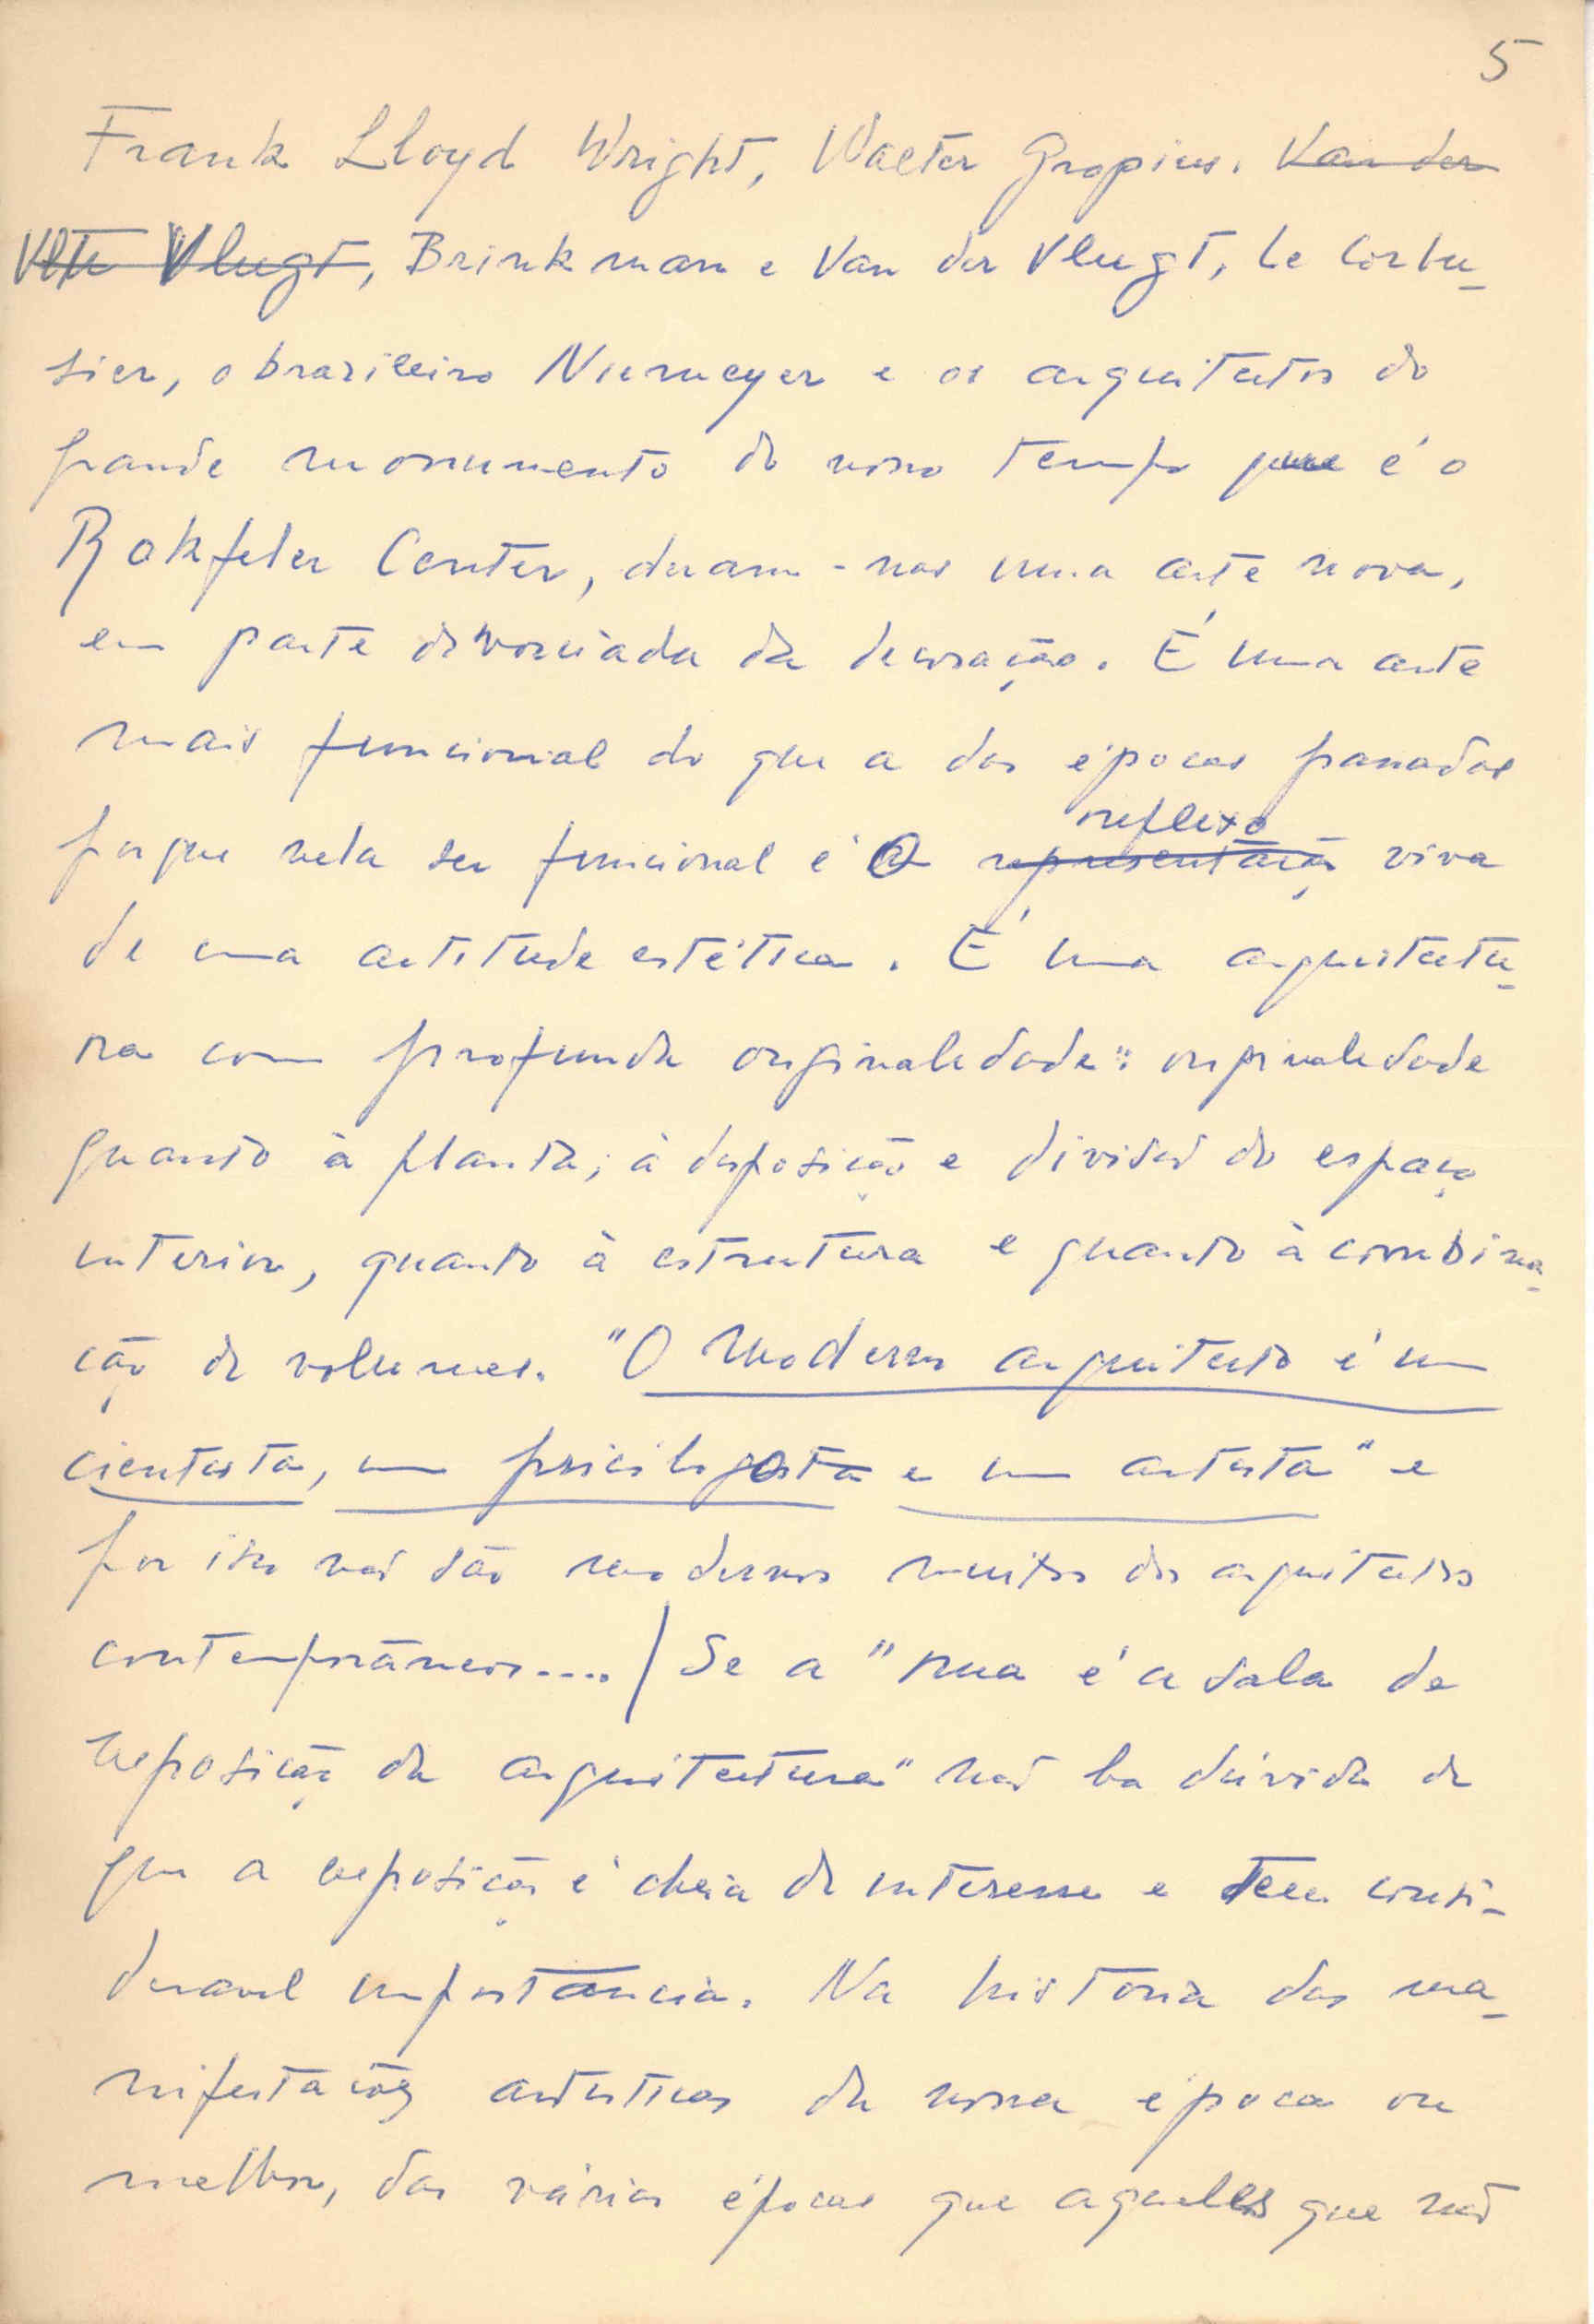 5
Frank Lloyd Wright, Walter Gropius. Van der
Vlugt, Brinkman e Van der Vlugt, Le Corbu-
sier, o brazileiro Niemeyer e os arquitectos do
grande monumento do nosso tempo que é o
Rokfeler Center, deram-nos uma arte nova,
em parte divorciada da decoração. É uma arte
mais funcional do que a das épocas passadas
reflexo
porque nela ser funcional é o representação viva
de uma actitude estética. É uma arquitectu-
ra com profunda originalidade: originalidade
quanto à planta; à disposição e divisão do espaço
interior, quanto à estrutura e quanto à combina-
ção de volumes. "O moderno arquitecto é um
cientista, um psicilogosta e um artista" e
por isso não são modernos muitos dos arquitectos
contemporâneos.... / Se a "rua é a sala de
exposição da arquitectura" não ha dúvida de
que a exposição é cheia de interesse e tem consi-
deravel importância. Na história das ma-
nifestações artísticas da nossa época ou
melhor, das várias épocas que aqueles que não